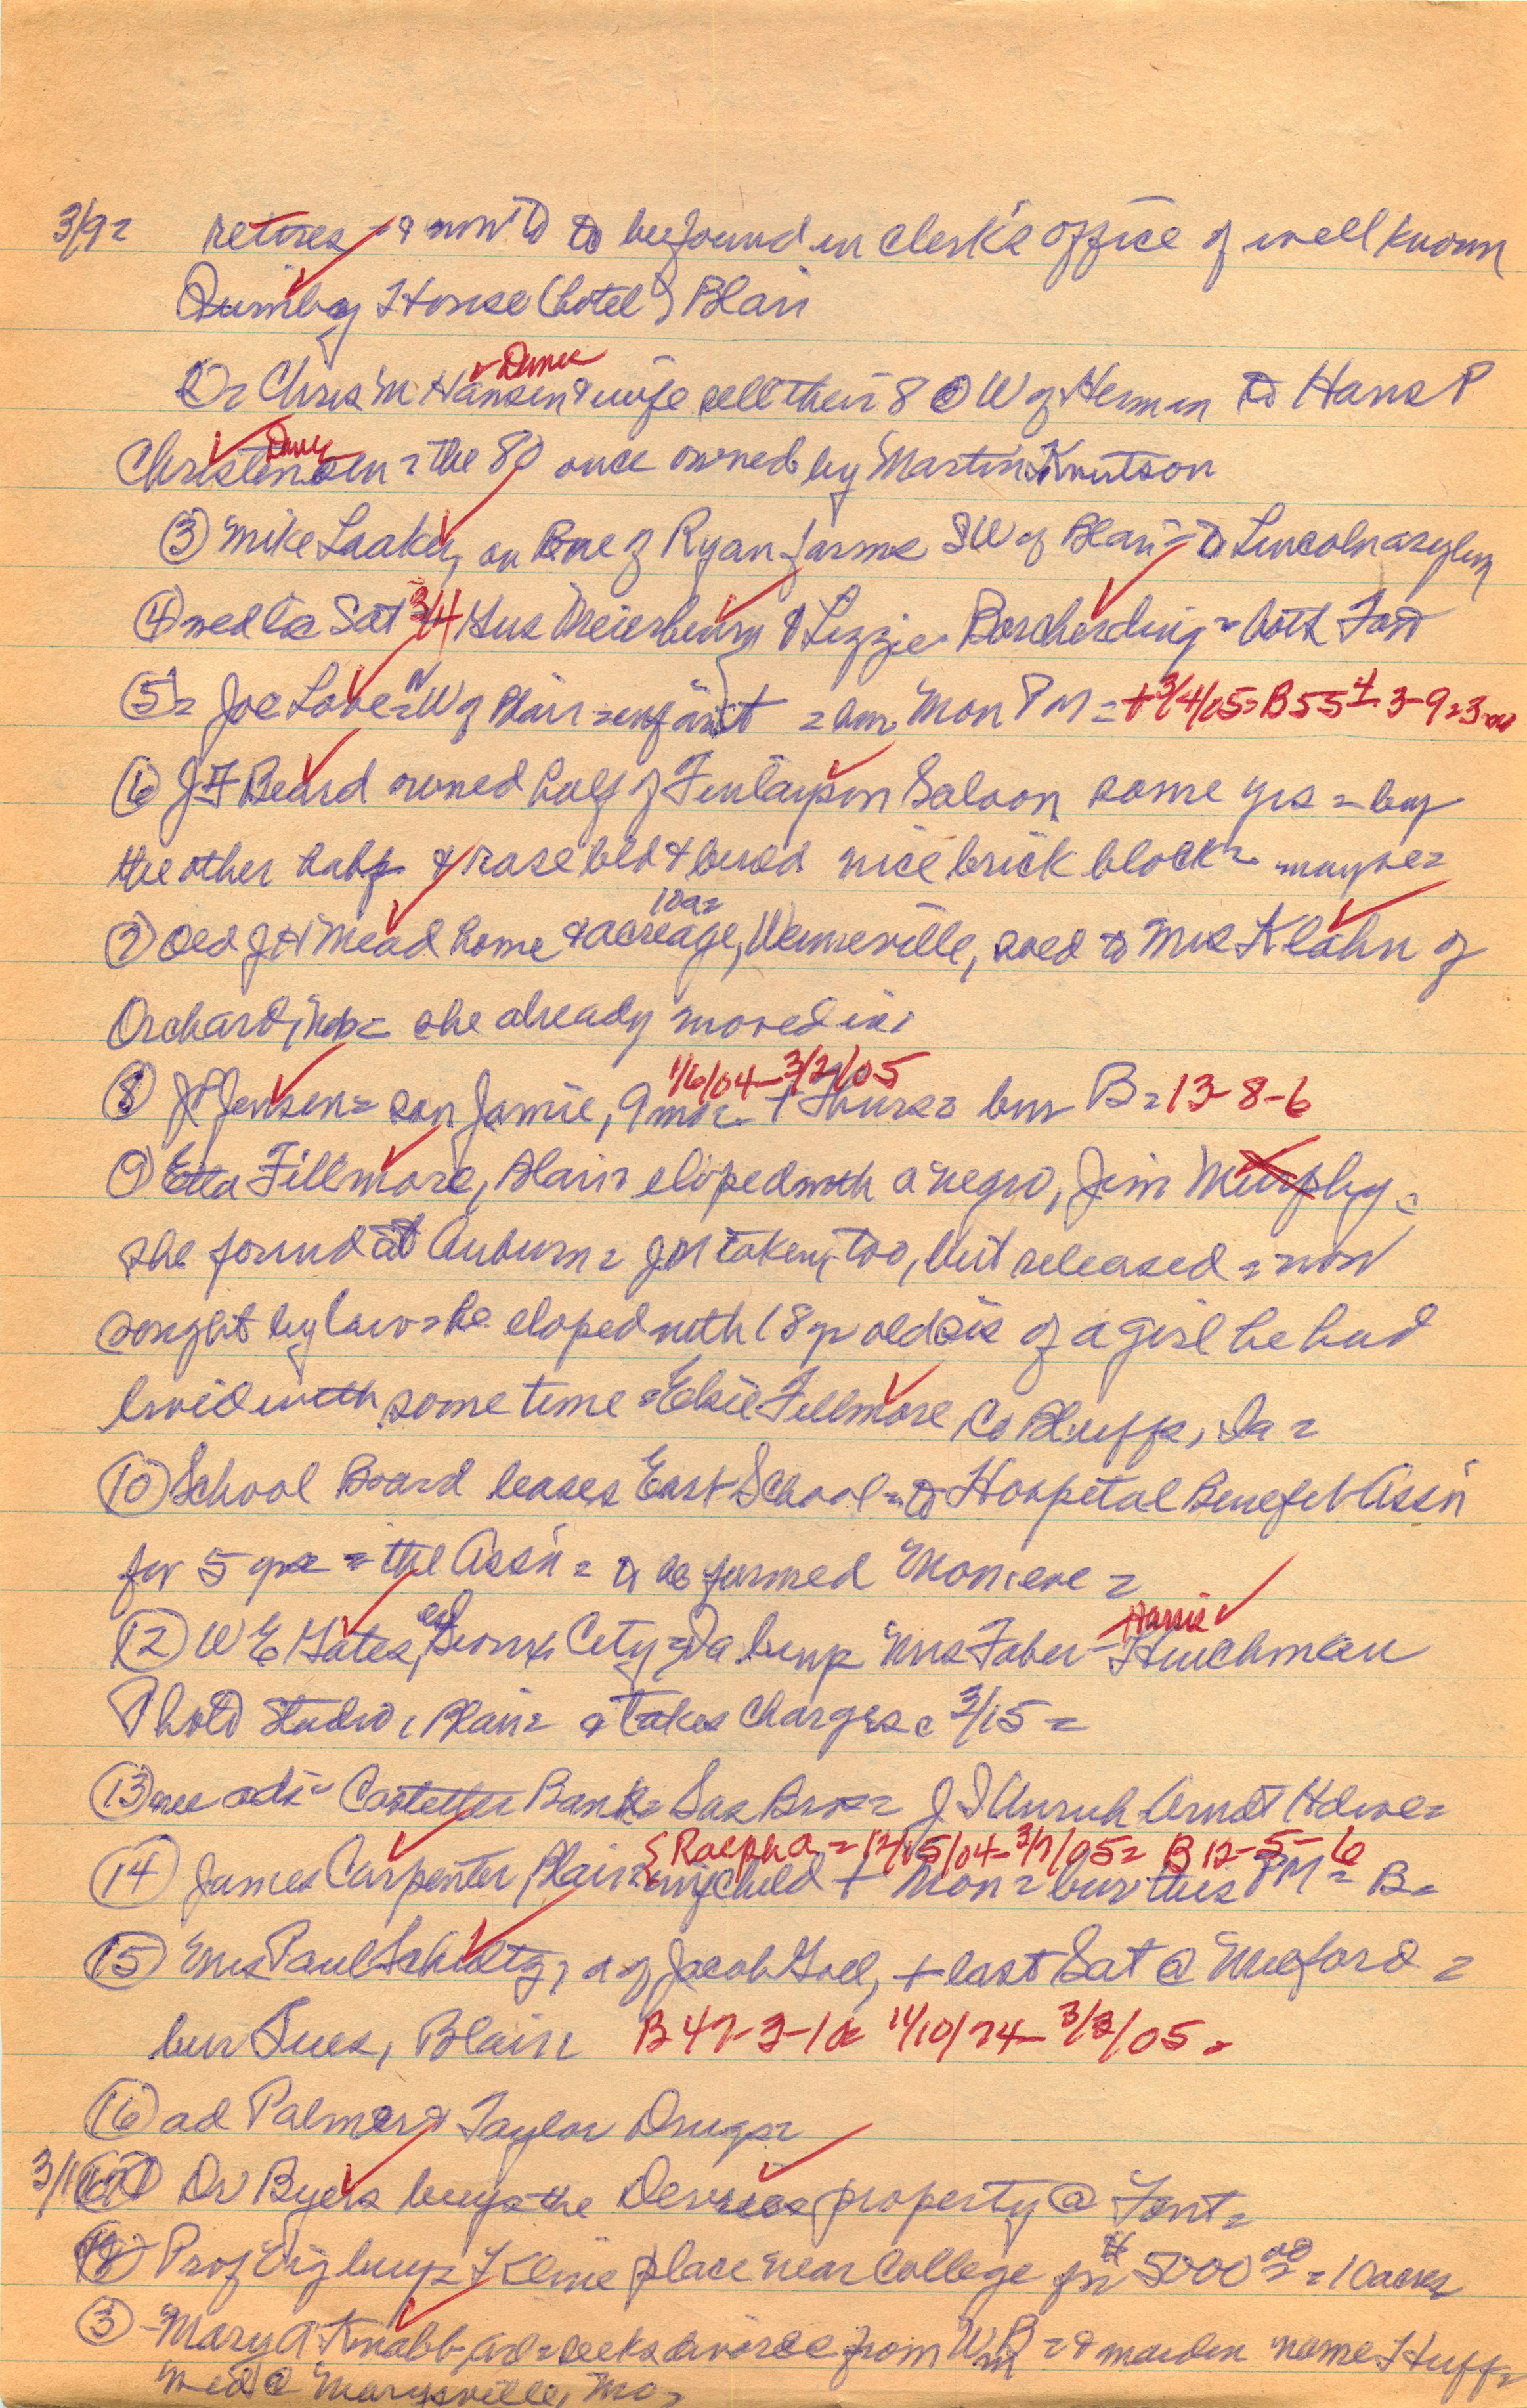 3/9= retires & now to be found in clerk's office of well known
Quimby House (hotel) Blair
Dane
2= Chris M Hansen & wife sell their 80 W of Herman to Hans P
Christensen = the 80 once owned by Martin Knutson
③ Mike Laaker, on one of Ryan farms SW of Blair = to Lincoln asylum
④ wed Sat 3/4 Gus Meierhenry & Lizzie Borcherding = both Font
⑤= Joe Love = NW of Blair = infant = bur Mon PM = +3/4/05= B 55 3-9=3
⑥ J F Beard owned half of Finlayson Saloon some yrs = buy
the other half & rase bld & build nice brick block = maybe=
10a=
⑦ Old J H Mead home & acreage, Venneville, sold to Mrs Klahn of
Orchard, Neb = she already moved in.
1/6/04-3/2/05
⑧ J P Jensen = son Jamie, 9 mo= + Thurs= bur B=13-8-6
⑨ Etta Fillmore, Blair= eloped with a negro, Jim Murphy=
she found at Auburn = J M taken, too, but released = now
sought by law = he eloped with 18 yr old sis of a girl he had
lived with some time = Elsie Fillmore Co Bluffs, Ia =
⑩ School Board leases East School = to Hospital Benefit Ass'n
for 5 yrs = the Ass'n = to be formed Mon eve =
Harris
⑫ W E Gates, Sioux City = Ia buys Mrs Faber - Hinchman
Photo Studio, Blair= & takes charge 3/15 =
⑬ see ads = Castetter Bank= Sas Bros= J S Unruh Arndt Hdwe=
{ Ralph A = 12/15/04-3/7/05= B 12-5-6
⑭ James Carpenter, Blair= child + Mon = bur this PM = B=
⑮ Mrs Paul Schultz, d of Jacob Goll, + last Sat @ Milford =
bur Tues, Blair B 47-3-1 11/10/74-3/3/05=
⑯ ad Palmer & Taylor Drugs=
3/ Dr Byers buys the Devries property @ Font=
Prof buys Kline place near College for $5000 00 = 10 acres
③ Mary A Knabb, seeks divorce from Wm = & maiden name Huff=
wed @ Marysville, Mo=